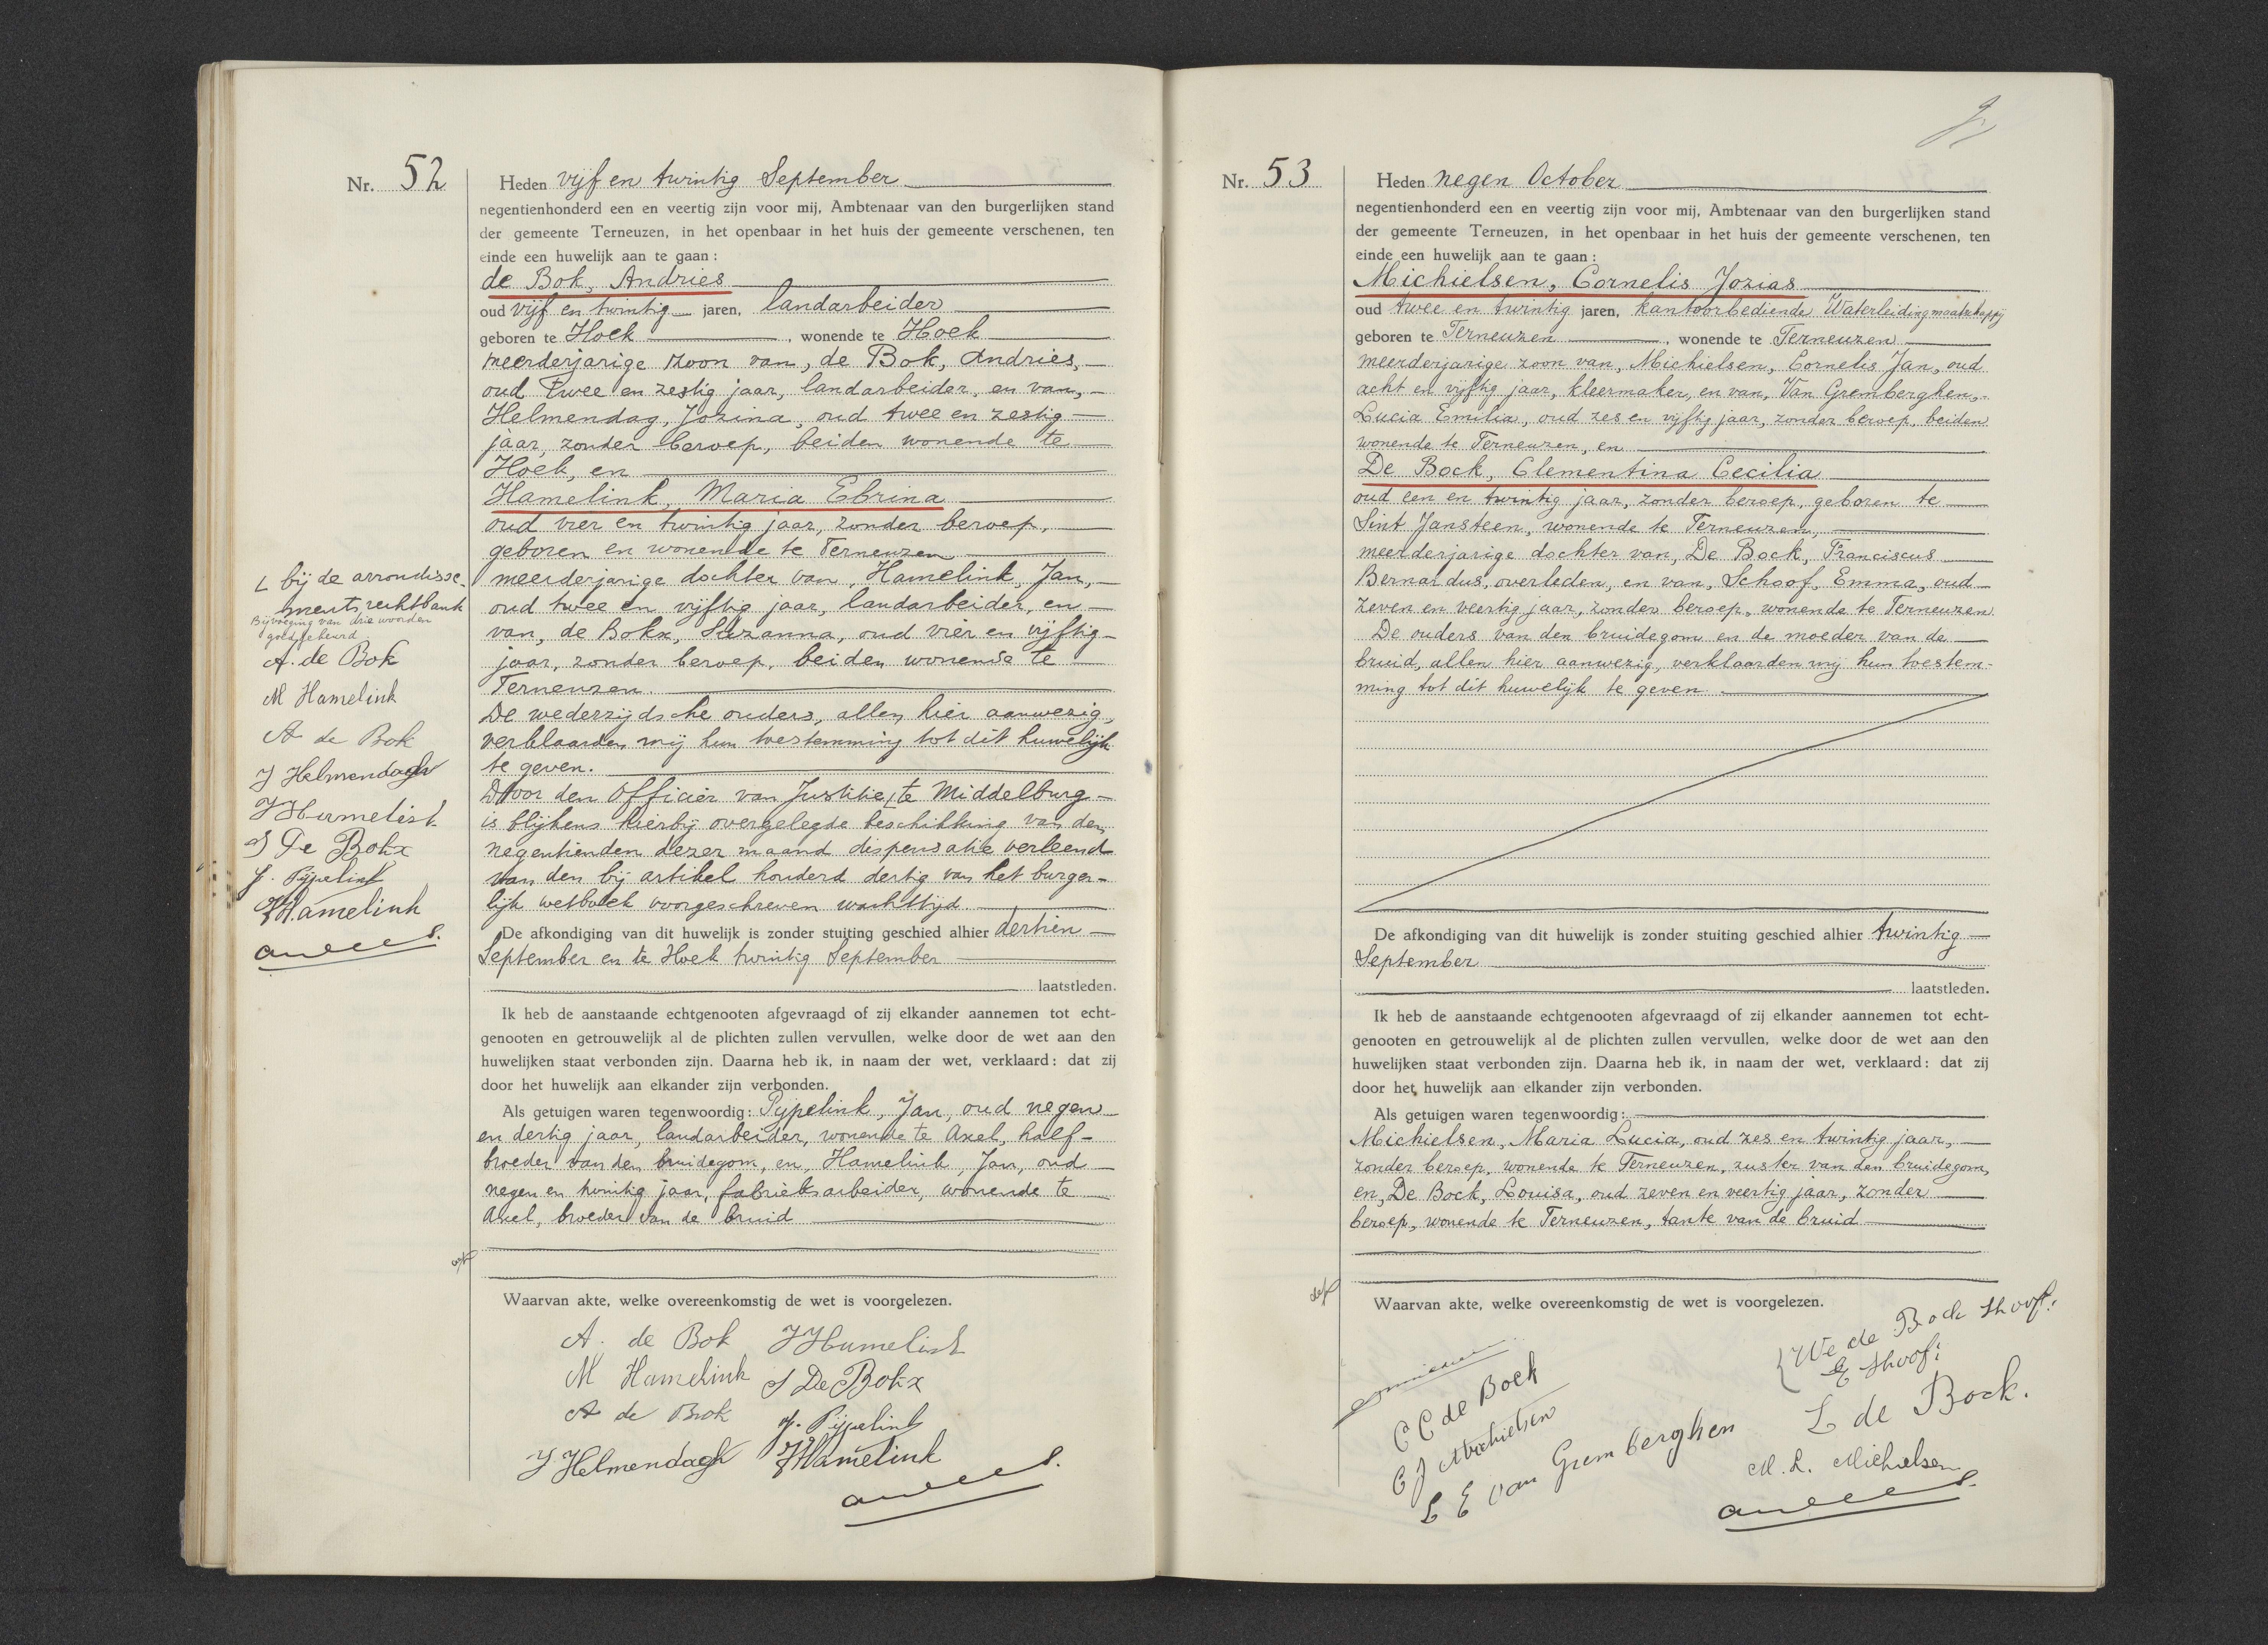 Nr. 52
Heden vijf en twintig September
negentienhonderd een en veertig zijn voor mij, Ambtenaar van den burgerlijken stand
der gemeente Terneuzen, in het openbaar in het huis der gemeente verschenen, ten
einde een huwelijk aan te gaan:
de Bok, Andries
oud vijf en twintig jaren, landarbeider
geboren te Hoek, wonende te Hoek
meerderjarige zoon van, de Bok, Andries,
oud twee en zestig jaar, landarbeider, en van,
Helmendag, Jozina, oud twee en zestig
jaar, zonder beroep, beiden wonende te
Hoek, en
Hamelink, Maria Ebrina
oud vier en twintig jaar, zonder beroep,
geboren en wonende te Terneuzen
meerderjarige dochter van, Hamelink, Jan,
oud twee en vijftig jaar, landarbeider, en
van, de Bokx, Suzanna, oud vier en vijftig
jaar, zonder beroep, beiden wonende te
Terneuzen.
De wederzijdsche ouders, allen hier aanwezig,
verklaarden mij hun toestemming tot dit huwelijk
te geven.
Door den Officier van Justitie ⌊ te Middelburg
is blijkens hierbij overgelegde beschikking van den
negentienden dezer maand dispensatie verleend
van den bij artikel honderd dertig van het burger-
lijk wetboek voorgeschreven wachttijd.
De afkondiging van dit huwelijk is zonder stuiting geschied alhier dertien
September en te Hoek twintig September
laatstleden.
Ik heb de aanstaande echtgenooten afgevraagd of zij elkander aannemen tot echt-
genooten en getrouwelijk al de plichten zullen vervullen, welke door de wet aan den
huwelijken staat verbonden zijn. Daarna heb ik, in naam der wet, verklaard: dat zij
door het huwelijk aan elkander zijn verbonden.
Als getuigen waren tegenwoordig: Pijpelink, Jan, oud negen
en dertig jaar, landarbeider, wonende te Axel, half-
broeder van den bruidegom, en, Hamelink, Jan, oud
negen en twintig jaar, fabrieksarbeider, wonende te
Axel, broeder van de bruid
Waarvan akte, welke overeenkomstig de wet is voorgelezen.
A. de Bok J Hamelink
M Hamelink S De Bokx
A de Bok J. Pijpelink
J Helmendagh J Hamelink
⌊ bij de arrondisse-
ments rechtbank
Bijvoeging van drie woorden
goedgekeurd
A. de Bok
M Hamelink
A de Bok
J Helmendagh
J Hamelink
S De Bokx
J. Pijpelink
J Hamelink
Nr. 53
Heden negen October
negentienhonderd een en veertig zijn voor mij, Ambtenaar van den burgerlijken stand
der gemeente Terneuzen, in het openbaar in het huis der gemeente verschenen, ten
einde een huwelijk aan te gaan:
Michielsen, Cornelis Jozias
oud twee en twintig jaren, kantoorbediende Waterleidingmaatschappij
geboren te Terneuzen, wonende te Terneuzen
meerderjarige zoon van, Michielsen, Cornelis Jan, oud
acht en vijftig jaar, kleermaker, en van, Van Gremberghen,
Lucia Emilia, oud zes en vijftig jaar, zonder beroep, beiden
wonende te Terneuzen, en
De Bock, Clementina Cecilia
oud een en twintig jaar, zonder beroep, geboren te
Sint Jansteen, wonende te Terneuzen,
meerderjarige dochter van, De Bock, Franciscus
Bernardus, overleden, en van, Schoof, Emma, oud
zeven en veertig jaar, zonder beroep, wonende te Terneuzen
De ouders van den bruidegom en de moeder van de
bruid, allen hier aanwezig, verklaarden mij hun toestem-
ming tot dit huwelijk te geven.
De afkondiging van dit huwelijk is zonder stuiting geschied alhier twintig
September
laatstleden.
Ik heb de aanstaande echtgenooten afgevraagd of zij elkander aannemen tot echt-
genooten en getrouwelijk al de plichten zullen vervullen, welke door de wet aan den
huwelijken staat verbonden zijn. Daarna heb ik, in naam der wet, verklaard: dat zij
door het huwelijk aan elkander zijn verbonden.
Als getuigen waren tegenwoordig:
Michielsen, Maria Lucia, oud zes en twintig jaar,
zonder beroep, wonende te Terneuzen, zuster van den bruidegom,
en, De Bock, Louisa, oud zeven en veertig jaar, zonder
beroep, wonende te Terneuzen, tante van de bruid
Waarvan akte, welke overeenkomstig de wet is voorgelezen.
C C de Bock
C J Michielsen
L E van Gremberghen
We de Bock
L de Bock.
M. L. Michielsen